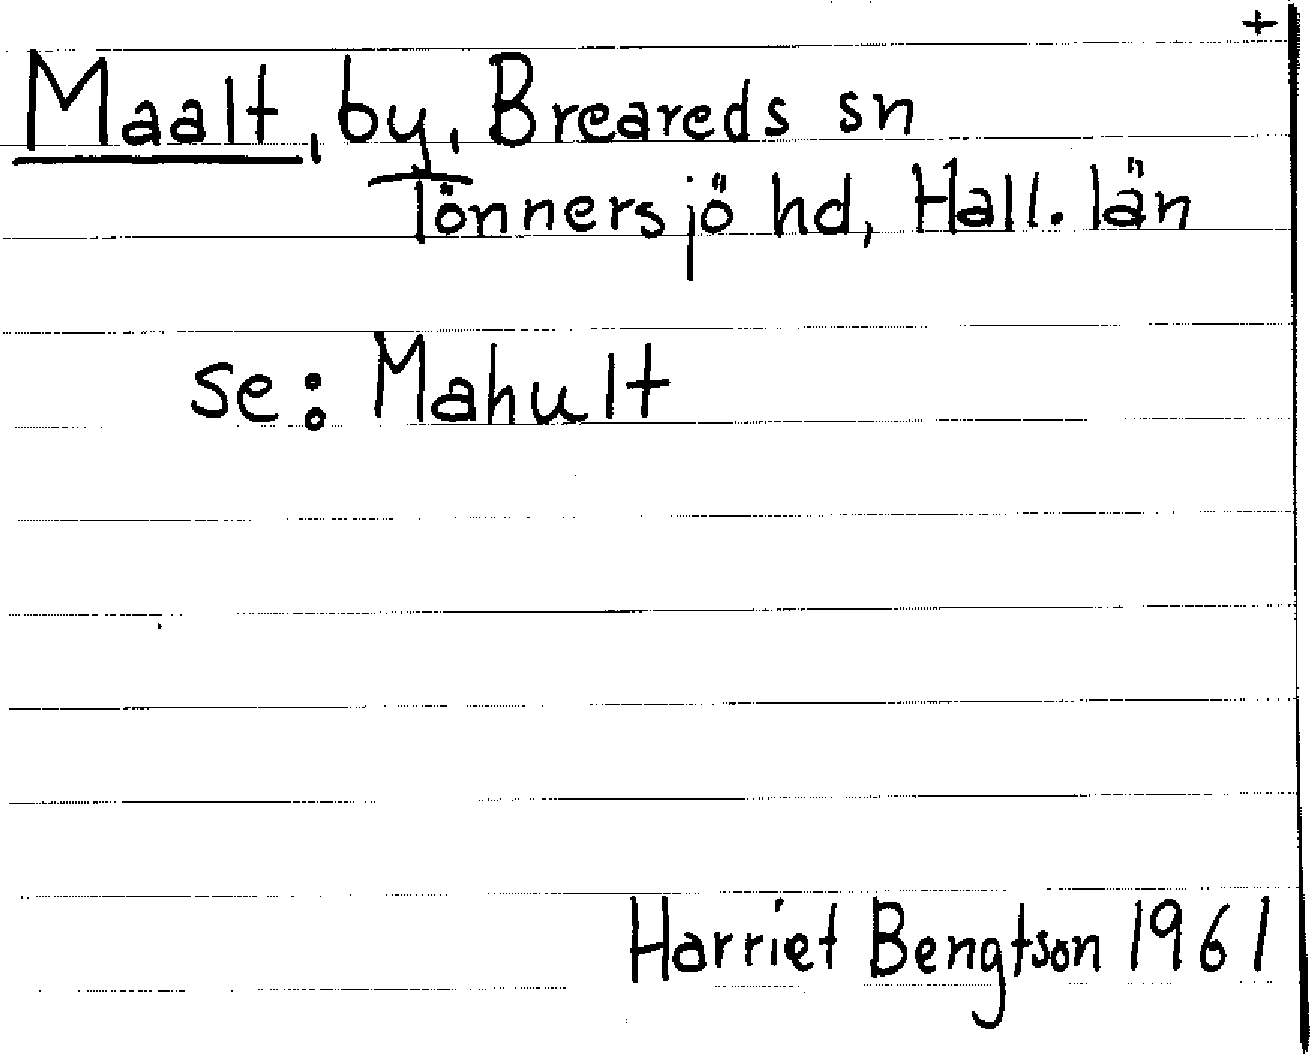 +
Maalt, by, Breareds sn
Tönnersjö hd, Hall. län
se: Mahult
Harriet Bengtson 1961